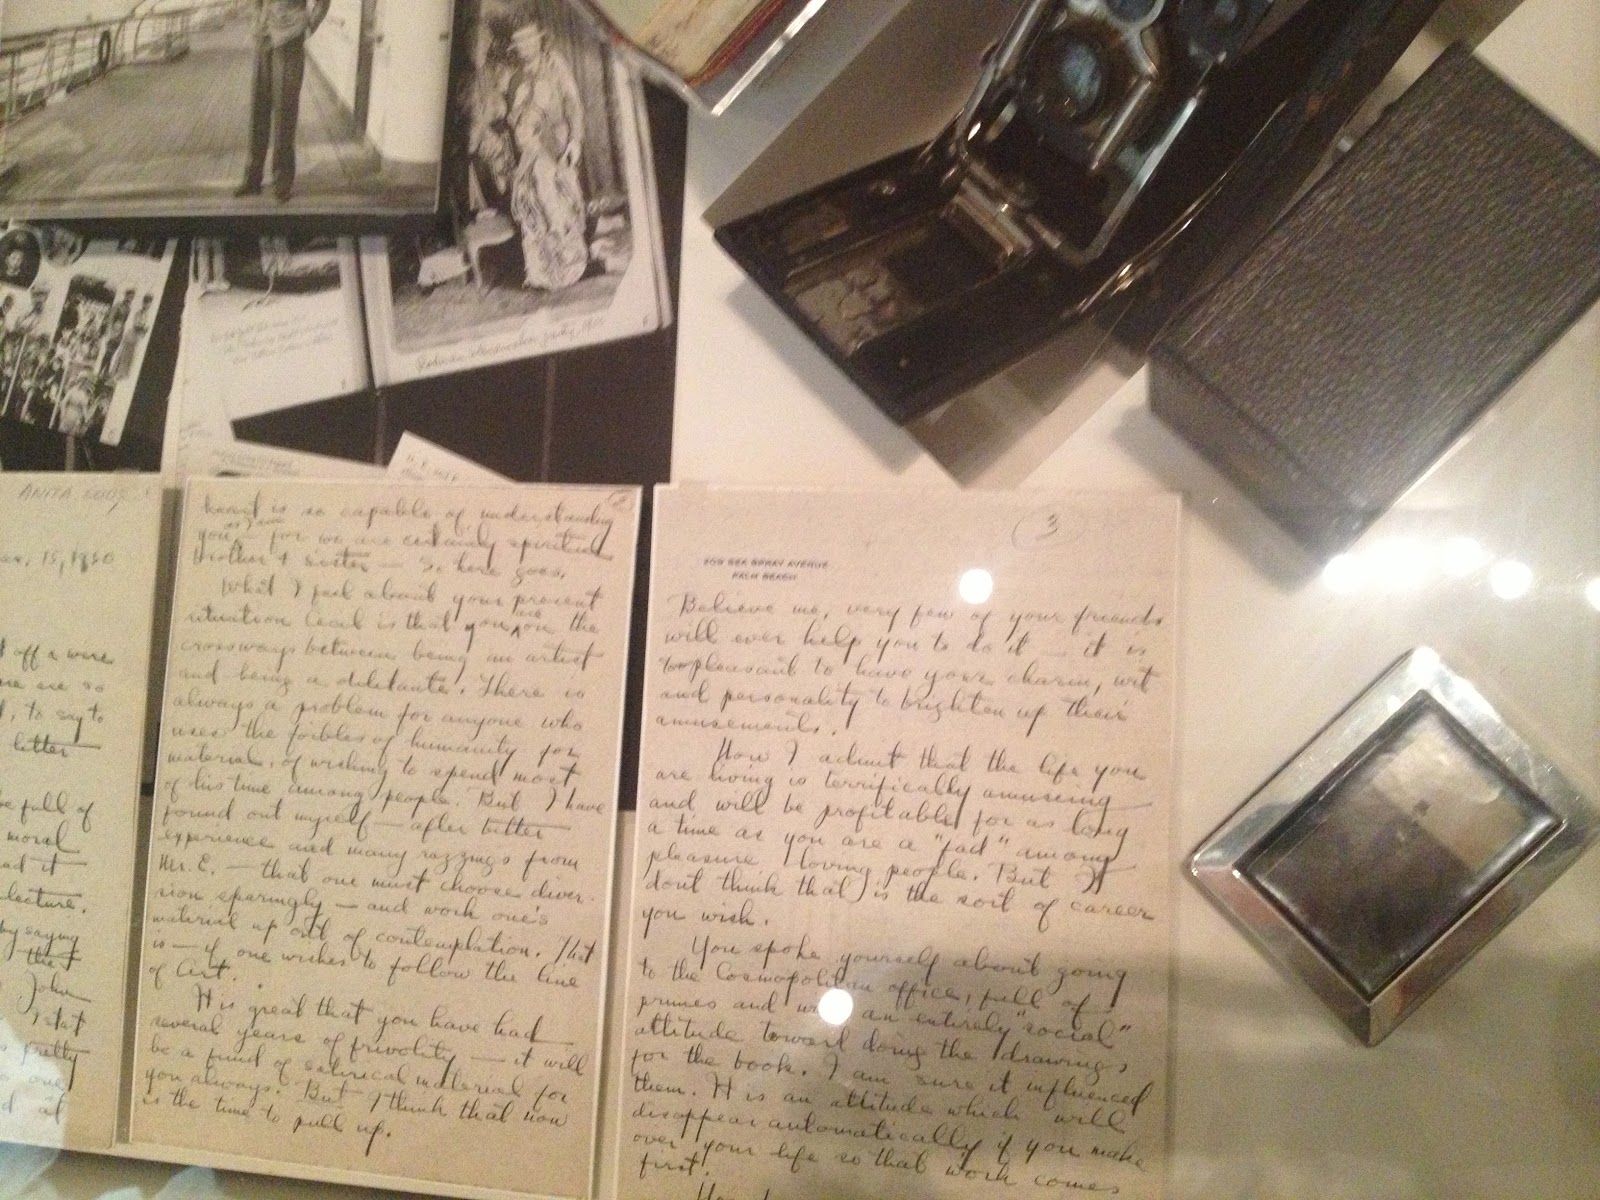 ANITA LOOS
15, 1930
off & were
are so
, to say to
letter
full of
moral
it
lecture.
by saying
the
John
pretty
one
at
2
heart is so capable of understanding
you as I am – for we are certainly spiritual
brother & sister — So here goes.
What I feel about your present
situation Cecil is that you are on the
crossways between being an artist
and being a diletante. There is
always a problem for anyone who
uses the foibles of humanity for
material, of wishing to spend most
of his time among people. But I have
found out myself — after bitter
experience and many razzings from
Mr. E. — that one must choose diver-
sion sparingly — and work one's
material up out of contemplation. That
is — if one wishes to follow the line
of Art.
It is great that you have had
several years of frivolity — it will
be a fund of satirical material for
you always. But I think that now
is the time to pull up.
3
SEA SPRAY AVENUE
PALM BEACH
Believe me, very few of your friends
will ever help you to do it — it is
pleasant to have your charm, wit
and personality to brighten up their
amusements.
Now I admit that the life you
are living is terrifically amusing
and will be profitable for as long
a time as you are a "fad" among
pleasure loving people. But I
dont think that is the sort of career
you wish.
You spoke yourself about going
to the Cosmopolitan office, full of
prunes and with an entirely "social"
attitude toward doing the drawings
for the book. I am sure it influenced
them. It is an attitude which will
disappear automatically if you make
over your life so that work comes
first.